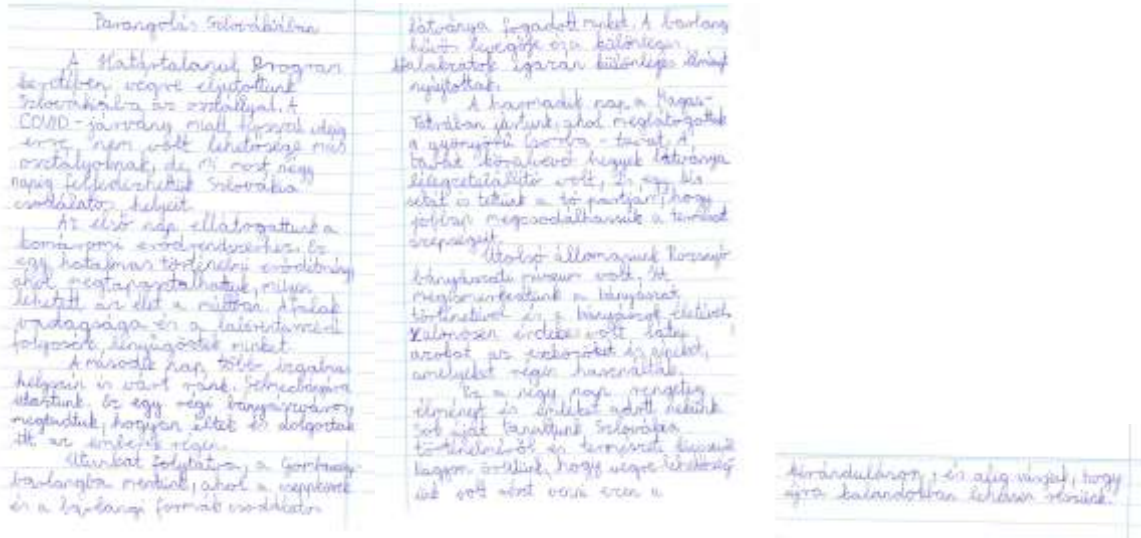 Barangolás Szlovákiában
A Határtalanul Program
keretében végre eljutottunk
Szlovákiába az osztállyal. A
COVID-járvány miatt hosszú ideig
erre nem volt lehetősége más
osztályoknak, de mi most négy
napig felfedezhettük Szlovákia
csodálatos helyeit.
Az első nap ellátogattunk a
komáromi erődrendszerhez. Ez
egy hatalmas történelmi erődítmény
ahol megtapasztalhattuk, milyen
lehetett az élet a múltban. A falak
vastagsága és a
lenyűgöztek minket.
A második nap több izgalmas
helyszín is várt ránk. Selmecbányára
utaztunk. Ez egy régi bányászváros
megtudtuk, hogyan éltek és dolgoztak
itt az emberek régen.
Utunkat folytatva, a Gombaszögi
barlangba mentünk, ahol a cseppkövek
és a barlangi formák csodálatos
látványa fogadott minket. A barlang
hűvös levegője és a különleges
alakzatok igazán különleges élményt
nyújtottak.
A harmadik nap a Magas-
Tátrában jártunk, ahol meglátogattuk
a gyönyörű Csorba-tavat. A
tavat körülvevő hegyek látványa
lélegzetelállító volt, és egy kis
sétát is tettünk a tó partján, hogy
jobban megcsodálhassuk a természet
szépségeit.
Utolsó állomásunk Rozsnyó
bányászati múzeum volt. Itt
megismerkedtünk a bányászat
történetével és a bányászok életével
Különösen érdekes volt látni
azokat az eszközöket és gépeket,
amelyeket régen használtak.
Ez a négy nap rengeteg
élményt és emléket adott nekünk
Sok újat tanultunk Szlovákia
történelméről és természeti kincseiről
Nagyon örülünk, hogy végre lehetőség
volt részt venni ezen a
kiránduláson, és alig várjuk, hogy
újra kalandokban lehessen részünk.